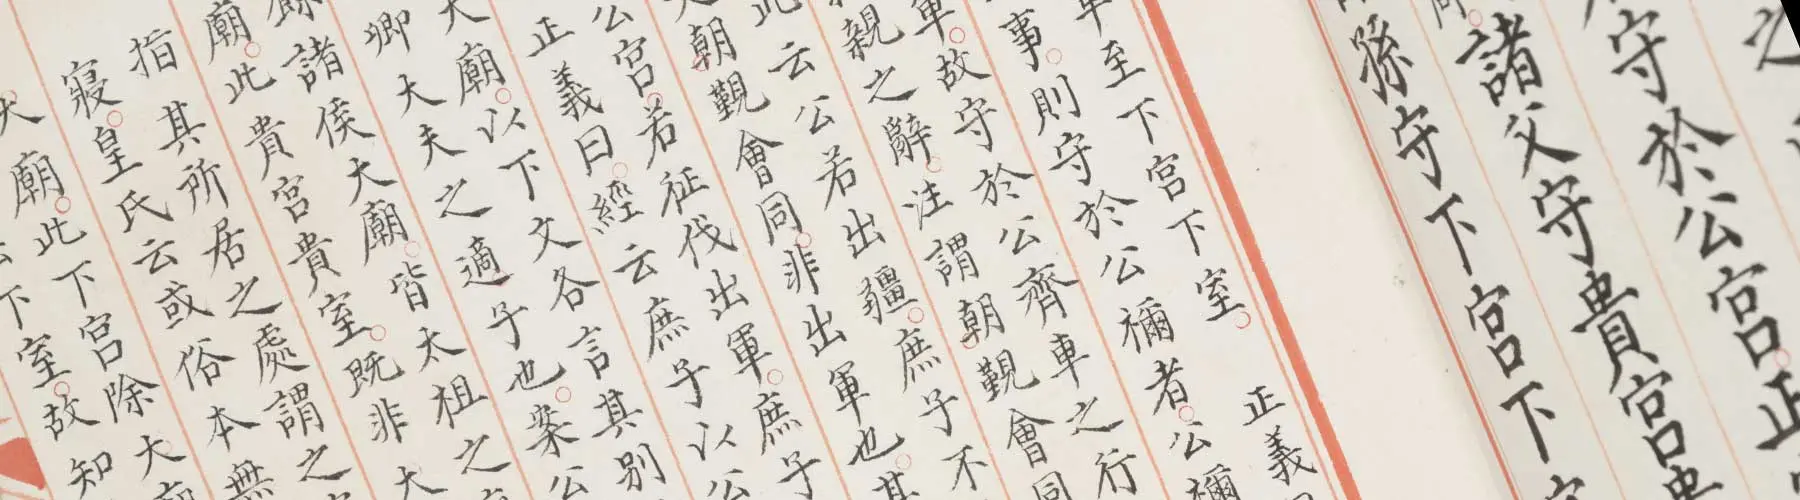 之
守於公宮正
諸父守貴宮貴
孫守下宮下室
正義
至下宮下室
事則守於公禰者公禰
軍故守於公齊車之行
親之辭注謂朝覲會同
此云公若出疆庶子不
朝覲會同非出軍也其
公宮若征伐出軍庶子
正義曰經云庶子以公
大廟以下文各言其別
卿大夫之適子也案公
諸侯大廟皆太祖之
廟此貴宮貴室既非大
指其所居之處謂之
寢皇氏云或俗本無
廟此下宮除大廟
大下室故知